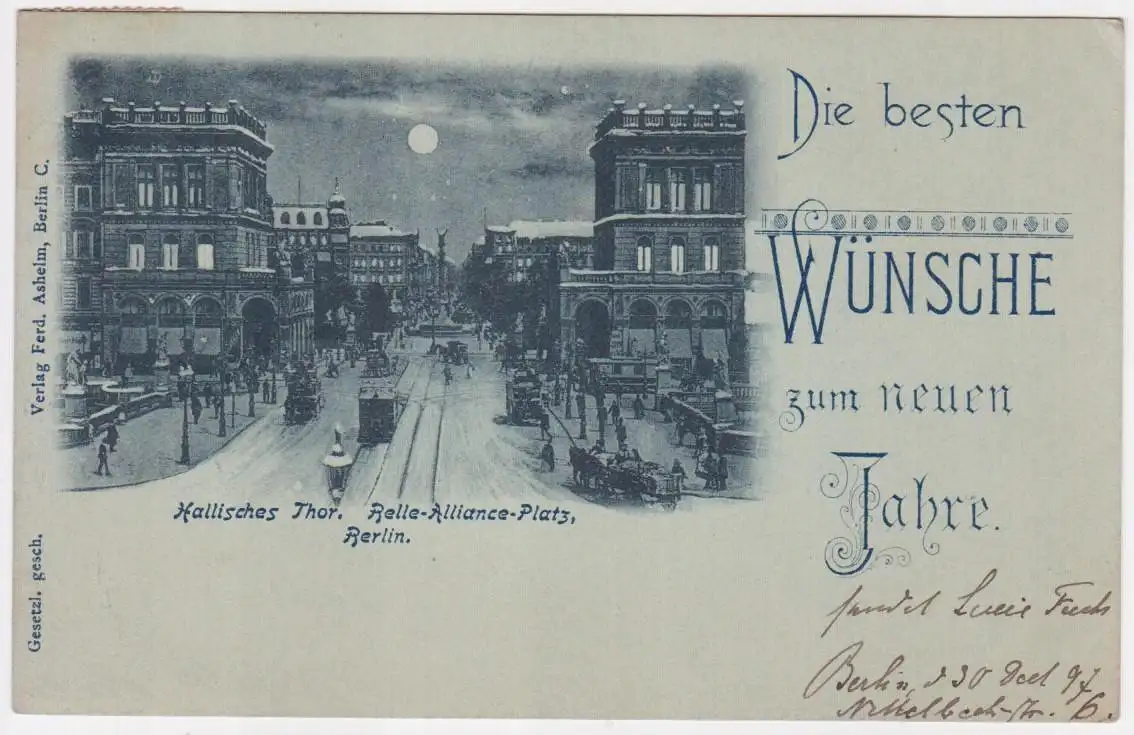 Die besten
WÜNSCHE
zum neuen
Jahre.
Hallisches Thor. Belle-Alliance-Platz,
Berlin.
Verlag Ferd. Ashelm, Berlin C.
Gesetzl. gesch.
sendet Lucie Fuchs
Berlin, d 30 Dect 97
Nettelbeck-Str. 6.